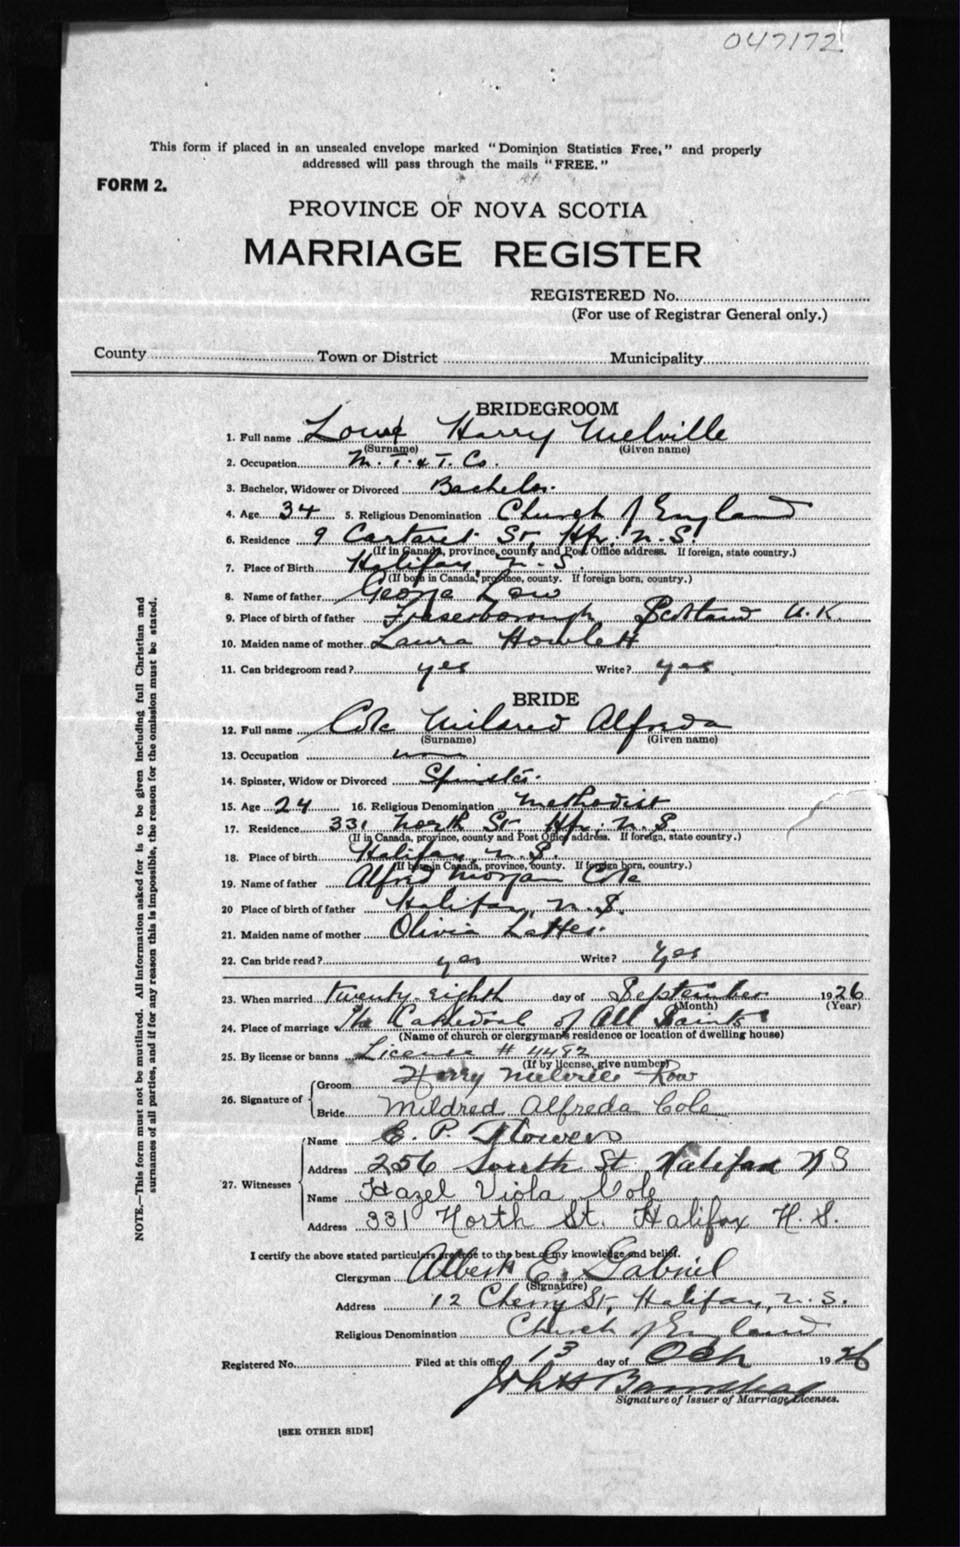 047172
This form if placed in an unsealed envelope marked "Dominion Statistics Free," and properly
addressed will pass through the mails "FREE."
FORM 2.
PROVINCE OF NOVA SCOTIA
MARRIAGE REGISTER
REGISTERED No.
(For use of Registrar General only.)
County Town or District Municipality
NOTE.—This form must not be mutilated. All information asked for is to be given including full Christian and
surnames of all parties, and if for any reason this is impossible, the reason for the omission must be stated.
BRIDEGROOM
1. Full name Harry Melville
(Surname) (Given name)
2. Occupation M. T. & T. Co.
3. Bachelor, Widower or Divorced Bachelor.
4. Age 34 5. Religious Denomination Church of England
6. Residence 9 St. Hfx. N.S.
(If in Canada, province, county and Post Office address. If foreign, state country.)
7. Place of Birth Halifax, N.S.
(If born in Canada, province, county. If foreign born, country.)
8. Name of father George Low
9. Place of birth of father Scotland U.K.
10. Maiden name of mother Laura Howlett
11. Can bridegroom read? yes Write? yes
BRIDE
12. Full name Cole Mildred Alfreda
(Surname) (Given name)
13. Occupation none
14. Spinster, Widow or Divorced Spinster.
15. Age 24 16. Religious Denomination Methodist
17. Residence 331 North St Hfx; N.S.
(If in Canada, province, county and Post Office address. If foreign, state country.)
18. Place of birth Halifax, N.S.
(If born in Canada, province, county. If foreign born, country.)
19. Name of father Alfred Morgan Cole
20 Place of birth of father Halifax, N.S.
21. Maiden name of mother Olivia
22. Can bride read? yes Write? Yes
23. When married twenty-eighth day of September 1926
(Month) (Year)
24. Place of marriage The Cathedral of All Saints
(Name of church or clergyman's residence or location of dwelling house)
25. By license or banns License # 4492
(If by license, give number)
26. Signature of
Groom Harry Melville
Bride Mildred Alfreda Cole
27. Witnesses
Name E. P. Flowers
Address 256 South St Halifax NS
Name Hazel Viola Cole
Address 331 North St. Halifax N.S.
I certify the above stated particulars are true to the best of my knowledge and belief.
Clergyman Albert E. Gabriel
(Signature)
Address 12 Cherry St, Halifax, N.S.
Religious Denomination Church of England
Registered No. Filed at this office 13 day of Oct 1926
Signature of Issuer of Marriage Licenses.
[SEE OTHER SIDE]